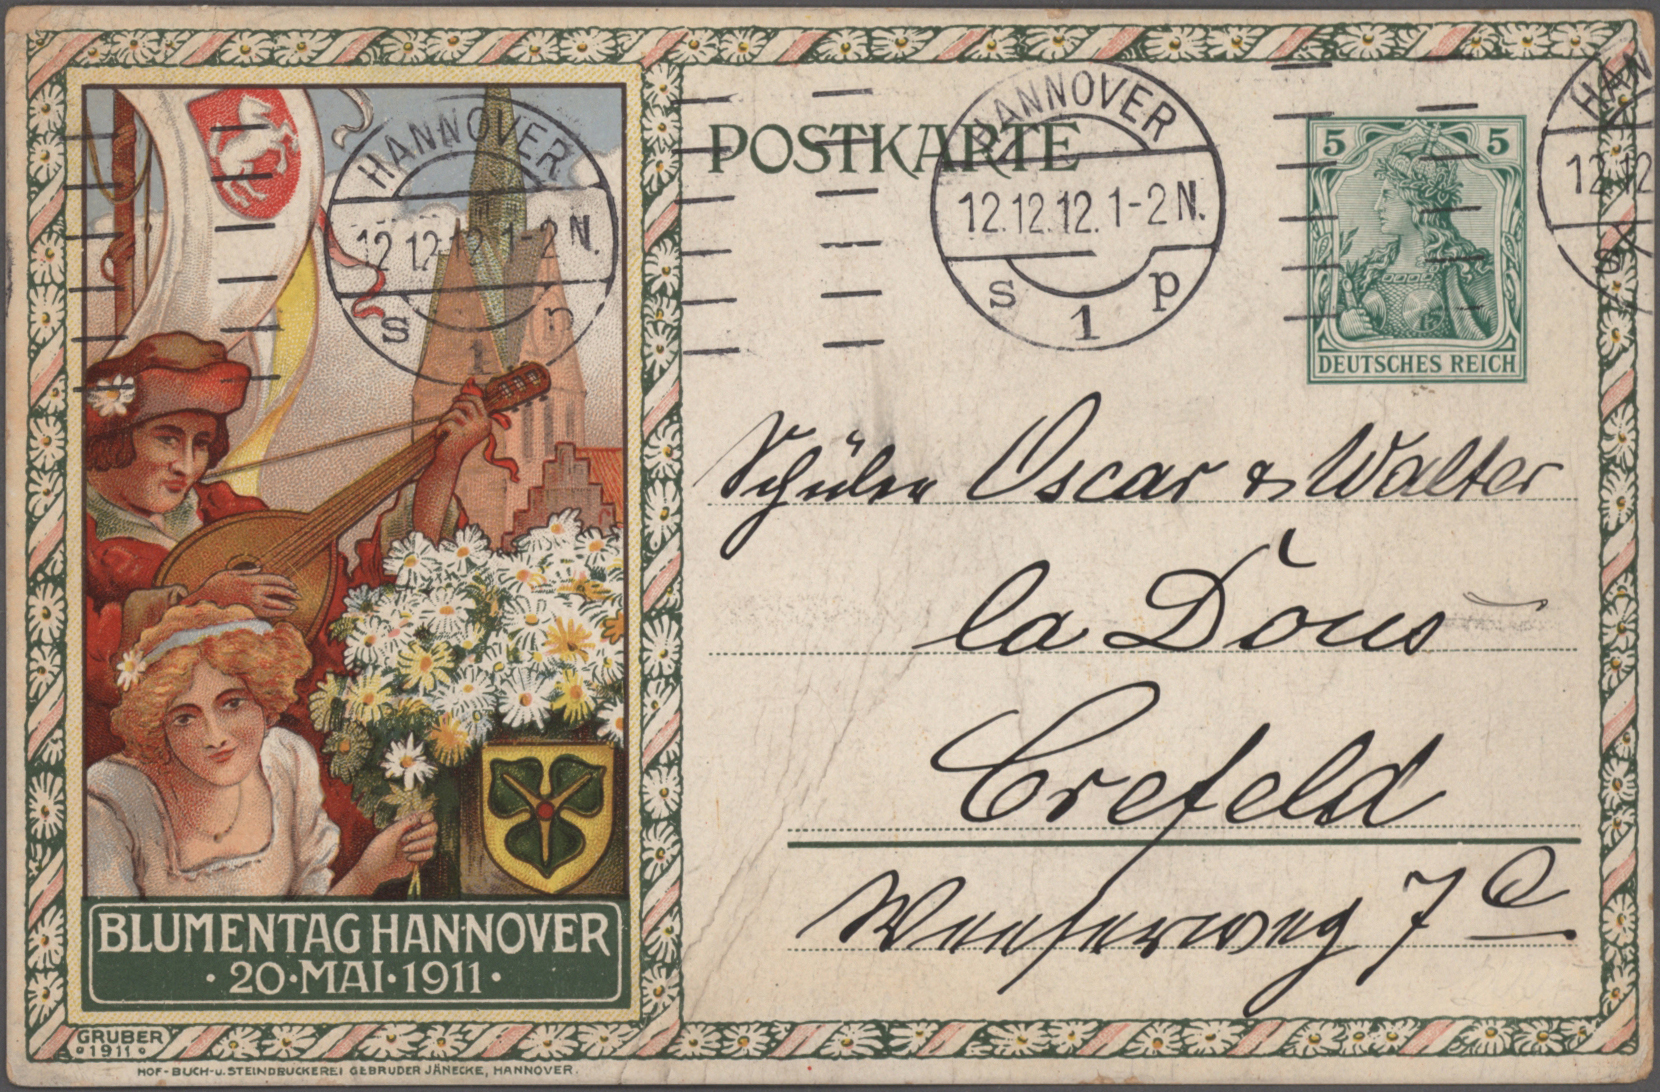 POSTKARTE
HANNOVER
12.12.12.1-2N.
s 1 p
HANNOVER
12.12.12.1-2N.
s 1 p
HAN
12.12
s
5 5
DEUTSCHES REICH
Schüler Oscar & Walter
la Dous
Crefeld
7 a
BLUMENTAG HANNOVER
· 20 · MAI · 1911 ·
GRUBER
· 1911 ·
HOF-BUCH-U. STEINDRUCKEREI GEBRÜDER JÄNECKE, HANNOVER.